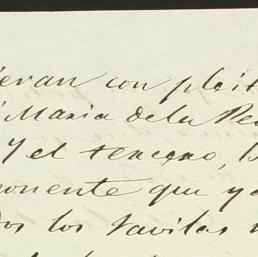 ieran con pleit
Maria de la Pe
Y el tercero, B
ponente que ya
dos los Favilas